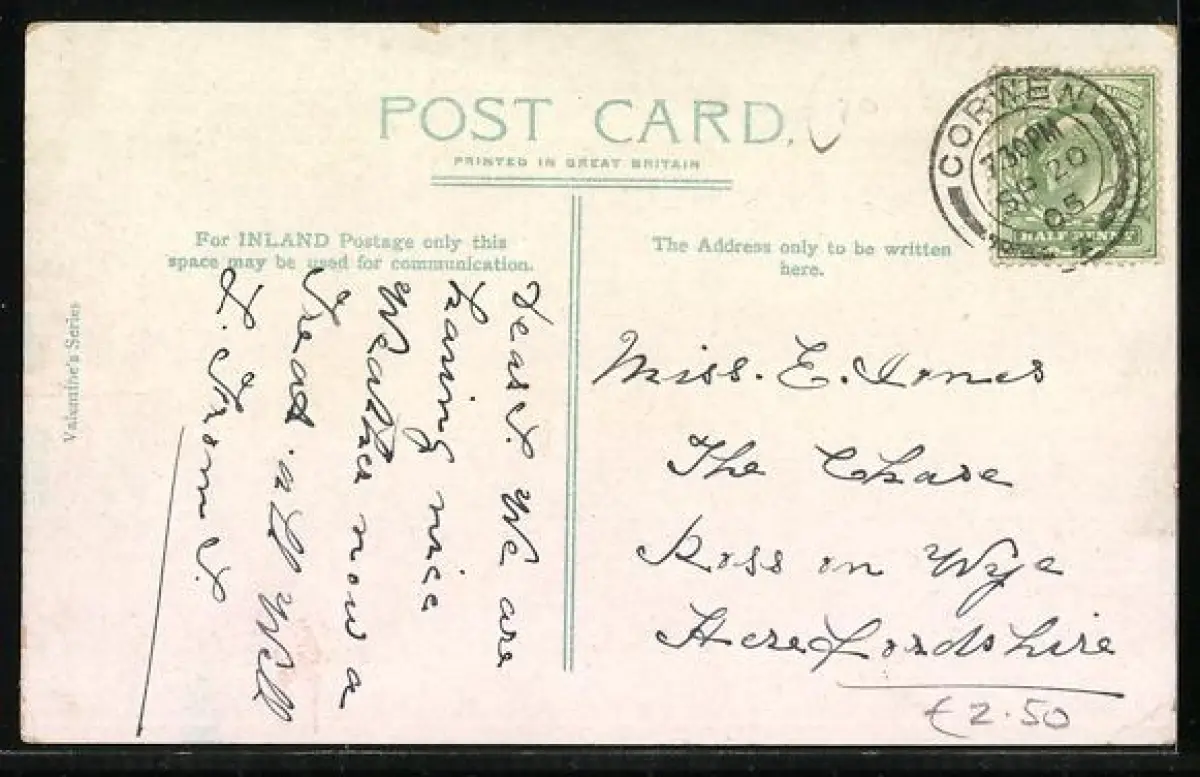 POST CARD.
PRINTED IN GREAT BRITAIN
For INLAND Postage only this
space may be used for communication.
The Address only to be written
here.
Valentine's Series
CORWEN
7.30 PM
SP 20
05
HALFPENNY
We are
having nice
Weather now
all Well
Miss. E. Jones
The Chase
Ross on Wye
Herefordshire
£2.50